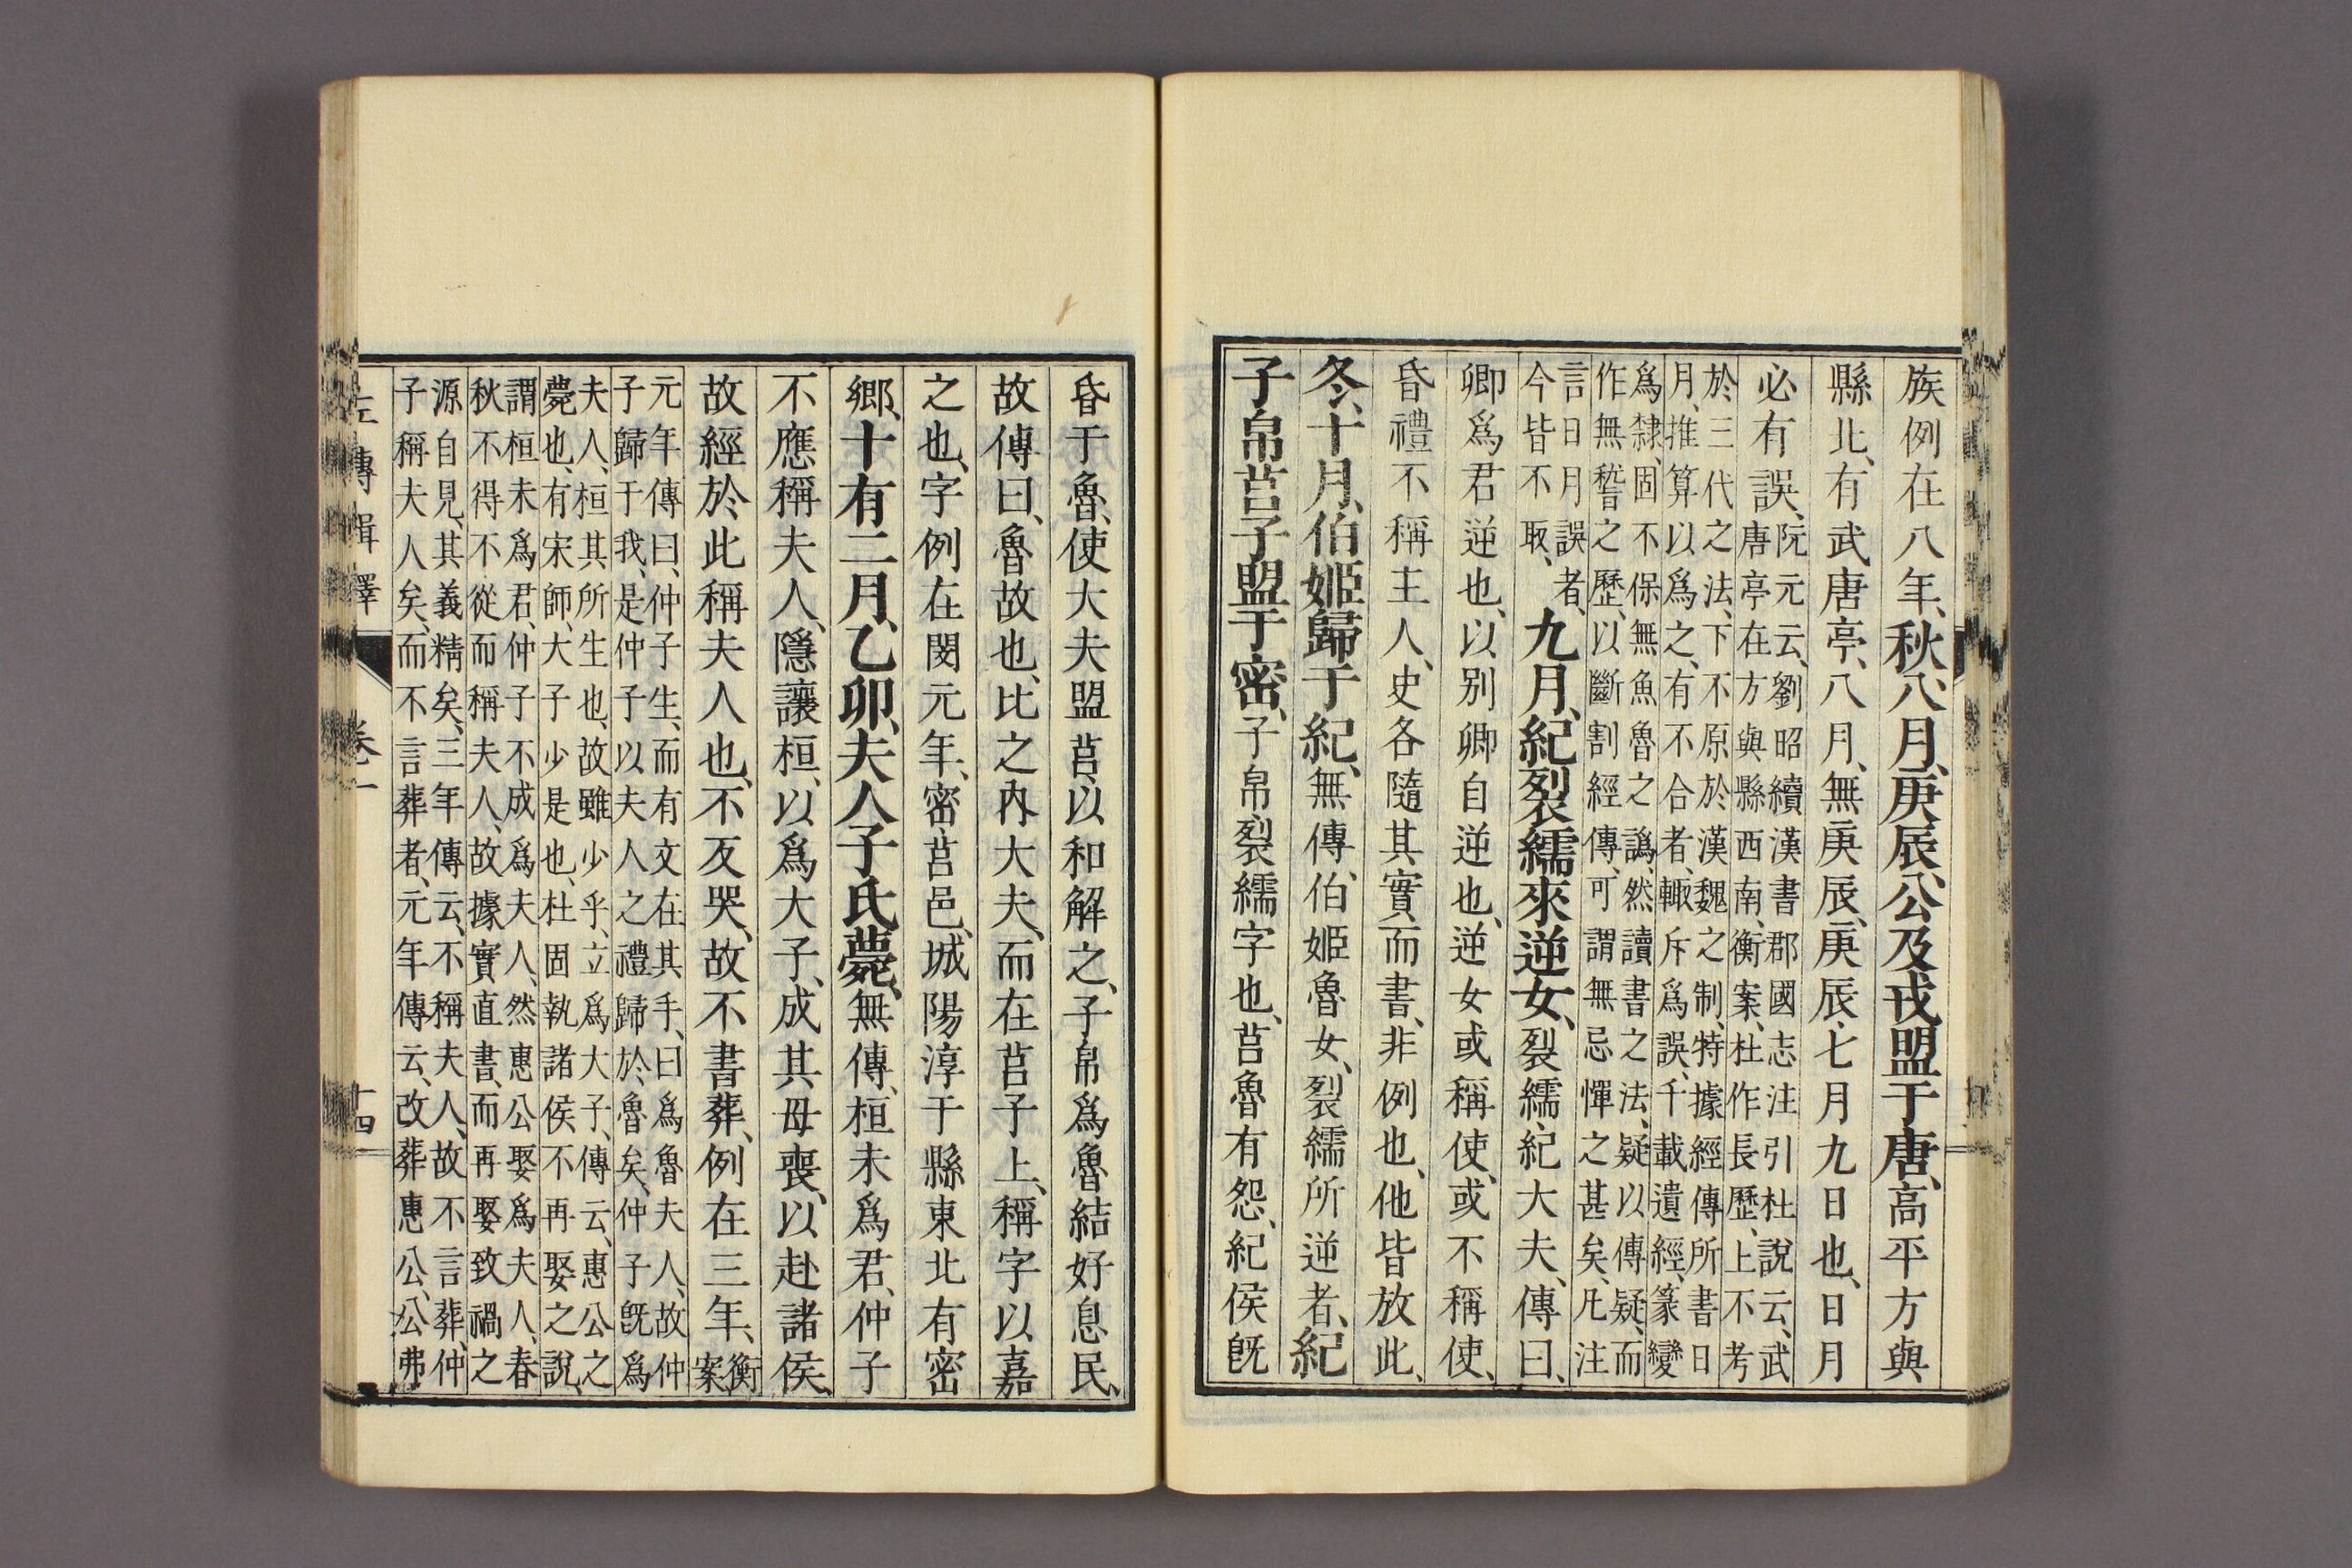 族例在八年、秋、八月、庚辰、公及戎盟于唐、高平方與
縣北、有武唐亭、八月、無庚辰、庚辰、七月九日也、日月
必有誤、
阮元云、劉昭續漢書郡國志注引杜說云、武
唐亭在方與縣西南、衡案、杜作長歷、上不考
於三代之法、下不原於漢魏之制、特據經傳所書日
月、推算以爲之、有不合者、輙斥爲誤、千載遺經、篆變
爲隸、固不保無魚魯之譌、然讀書之法、疑以傳疑、而
作無稽之歷、以斷割經傳、可謂無忌憚之甚矣、凡注
言日月誤者、
今皆不取、
九月、紀裂繻來逆女、裂繻、紀大夫、傳曰、
卿爲君逆也、以別卿自逆也、逆女或稱使、或不稱使、
昏禮不稱主人、史各隨其實而書、非例也、他皆放此、
冬、十月、伯姬歸于紀、無傳、伯姬魯女、裂繻所逆者、紀
子帛莒子盟于密、子帛裂繻字也、莒魯有怨、紀侯旣
昏于魯、使大夫盟莒、以和解之、子帛爲魯結好息民、
故傳曰、魯故也、比之內大夫、而在莒子上、稱字以嘉
之也、字例在閔元年、密、莒邑、城陽淳于縣東北有密
鄉、十有二月、乙卯、夫人子氏薨、無傳、桓未爲君、仲子
不應稱夫人、隱讓桓、以爲大子、成其母喪、以赴諸侯、
故經於此稱夫人也、不反哭、故不書葬、例在三年、
衡
案
元年傳曰、仲子生、而有文在其手、曰爲魯夫人、故仲
子歸于我、是仲子以夫人之禮歸於魯矣、仲子旣爲
夫人、桓其所生也、故雖少乎、立爲大子、傳云、惠公之
薨也、有宋師、大子少是也、杜固執諸侯不再娶之說、
謂桓未爲君、仲子不成爲夫人、然惠公娶爲夫人、春
秋不得不從而稱夫人、故據實直書、而再娶致禍之
源自見、其義精矣、三年傳云、不稱夫人、故不言葬、仲
子稱夫人矣、而不言葬者、元年傳云、改葬惠公、公弗
左傳輯釋 卷一 十四